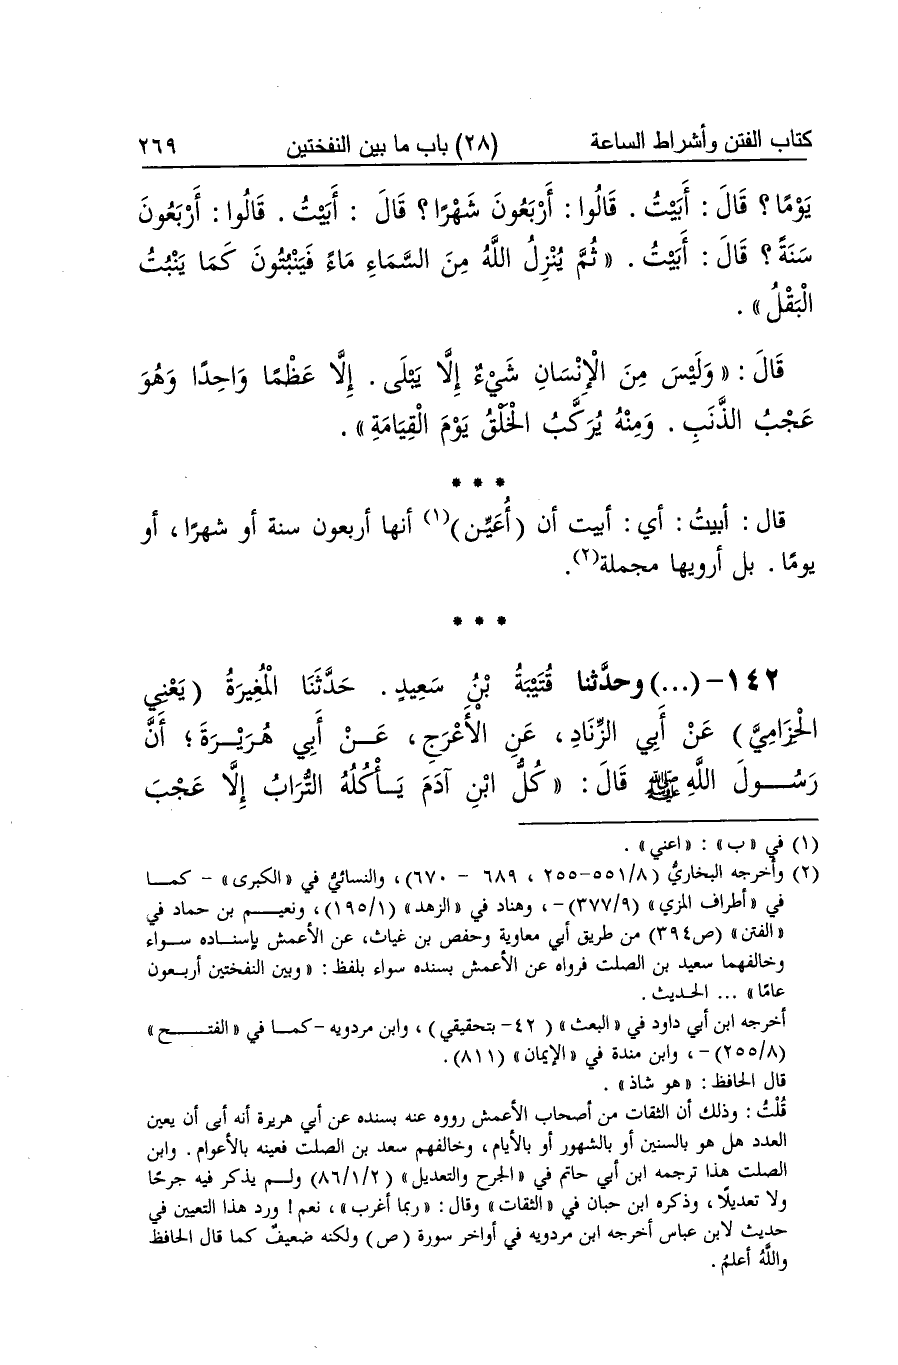 كتاب الفتن وأشراط الساعة (٢٨) باب ما بين النفختين ٢٦٩
يَوْمًا؟ قَالَ: أَبَيْتُ. قَالُوا: أَرْبَعُونَ شَهْرًا؟ قَالَ: أَبَيْتُ. قَالُوا: أَرْبَعُونَ
سَنَةً؟ قَالَ: أَبَيْتُ. «ثُمَّ يُنْزِلُ اللَّهُ مِنَ السَّمَاءِ مَاءً فَيَنْبُتُونَ كَمَا يَنْبُتُ
الْبَقْلُ».
قَالَ: «وَلَيْسَ مِنَ الْإِنْسَانِ شَيْءٌ إِلَّا يَبْلَى. إِلَّا عَظْمًا وَاحِدًا وَهُوَ
عَجْبُ الذَّنَبِ. وَمِنْهُ يُرَكَّبُ الْخَلْقُ يَوْمَ الْقِيَامَةِ».
* * *
قال: أبيتُ: أي: أبيت أن (أُعَيِّن)(١) أنها أربعون سنة أو شهرًا، أو
يومًا. بل أرويها مجملة(٢).
* * *
١٤٢-(...) وحدَّثنا قُتَيْبَةُ بْنُ سَعِيدٍ. حَدَّثَنَا الْمُغِيرَةُ (يَعْنِي
الْحِزَامِيَّ) عَنْ أَبِي الزِّنَادِ، عَنِ الْأَعْرَجِ، عَـنْ أَبِي هُرَيْـرَةَ؛ أَنَّ
رَسُـولَ اللَّهِ ﷺ قَالَ: «كُلُّ ابْنِ آدَمَ يَـأْكُلُهُ التُّرَابُ إِلَّا عَجْبَ
(١) في «ب»: «اعني».
(٢) وأخرجه البخاريُّ (٥٥١/٨-٢٥٥، ٦٨٩ - ٦٧٠)، والنسائيُّ في «الكبرى» - كمـا
في «أطراف المزي» (٣٧٧/٩)-، وهناد في «الزهد» (١٩٥/١)، ونعيـم بن حماد في
«الفتن» (ص٣٩٤) من طريق أبي معاوية وحفص بن غياث، عن الأعمش بإسنـاده سـواء
وخالفهما سعيد بن الصلت فرواه عن الأعمش بسنده سواء بلفظ: «وبين النفختين أربـعون
عامًا» ... الحديث.
أخرجه ابن أبي داود في «البعث» (٤٢- بتحقيقي)، وابن مردويه -كمـا في «الفتـح»
(٢٥٥/٨)-، وابن مندة في «الإيمان» (٨١١).
قال الحافظ: «هو شاذ».
قُلْتُ: وذلك أن الثقات من أصحاب الأعمش رووه عنه بسنده عن أبي هريرة أنه أبى أن يعين
العدد هل هو بالسنين أو بالشهور أو بالأيام، وخالفهم سعد بن الصلت فعينه بالأعوام. وابن
الصلت هذا ترجمه ابن أبي حاتم في «الجرح والتعديل» (٨٦/١/٢) ولـم يذكر فيه جرحًا
ولا تعديلًا، وذكره ابن حبان في «الثقات» وقال: «ربما أغرب»، نعم! ورد هذا التعيين في
حديث لابن عباس أخرجه ابن مردويه في أواخر سورة (ص) ولكنه ضعيفٌ كما قال الحافظ
واللَّهُ أعلمُ.